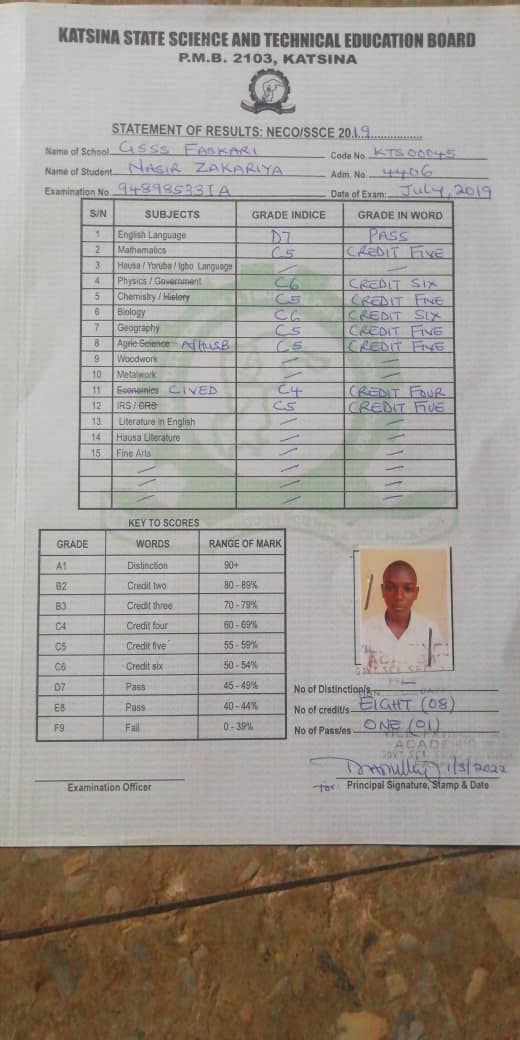 KATSINA STATE SCIENCE AND TECHNICAL EDUCATION BOARD
P.M.B. 2103, KATSINA
STATEMENT OF RESULTS: NECO/SSCE 2019
Name of School GSSS FASKARI Code No. KTS00045
Name of Student NASIR ZAKARIYA Adm. No. 4406
Examination No. 94898533IA Date of Exam: July, 2019
S/N SUBJECTS GRADE INDICE GRADE IN WORD
1 English Language D7 PASS
2 Mathematics C5 CREDIT FIVE
3 Hausa / Yoruba / Igbo Language
4 Physics / Government C6 CREDIT SIX
5 Chemistry / History C5 CREDIT FIVE
6 Biology C6 CREDIT SIX
7 Geography C5 CREDIT FIVE
8 Agric Science A/HUSB C5 CREDIT FIVE
9 Woodwork
10 Metalwork
11 Economics CIVED C4 CREDIT FOUR
12 IRS / CRS C5 CREDIT FIVE
13 Literature in English
14 Hausa Literature
15 Fine Arts
KEY TO SCORES
GRADE WORDS RANGE OF MARK
A1 Distinction 90+
B2 Credit two 80 - 89%
B3 Credit three 70 - 79%
C4 Credit four 60 - 69%
C5 Credit five 55 - 59%
C6 Credit six 50 - 54%
D7 Pass 45 - 49%
E8 Pass 40 - 44%
F9 Fail 0 - 39%
No of Distinction/s
No of credit/s EIGHT (08)
No of Pass/es ONE (01)
1/3/2022
Examination Officer
for: Principal Signature, Stamp & Date